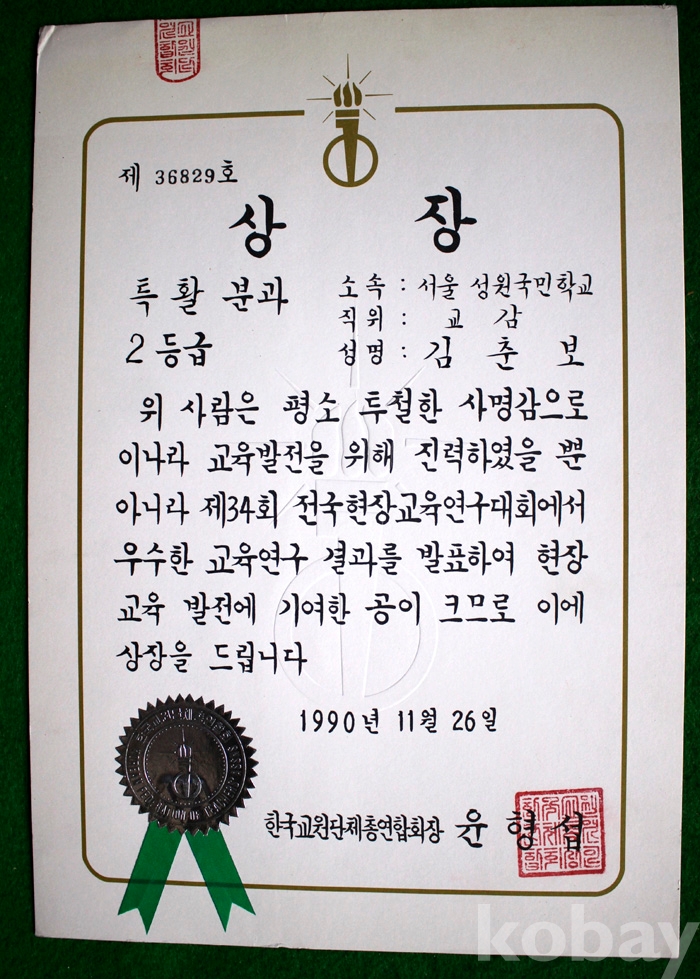 제 36829호
상 장
특활분과 소속 : 서울 성원국민학교
직위 : 교 감
2등급 성명 : 김 춘 보
위 사람은 평소 투철한 사명감으로
이나라 교육발전을 위해 진력하였을 뿐
아니라 제34회 전국현장교육연구대회에서
우수한 교육연구 결과를 발표하여 현장
교육 발전에 기여한 공이 크므로 이에
상장을 드립니다
1990년 11월 26일
한국교원단체총연합회장 윤형섭
kobay